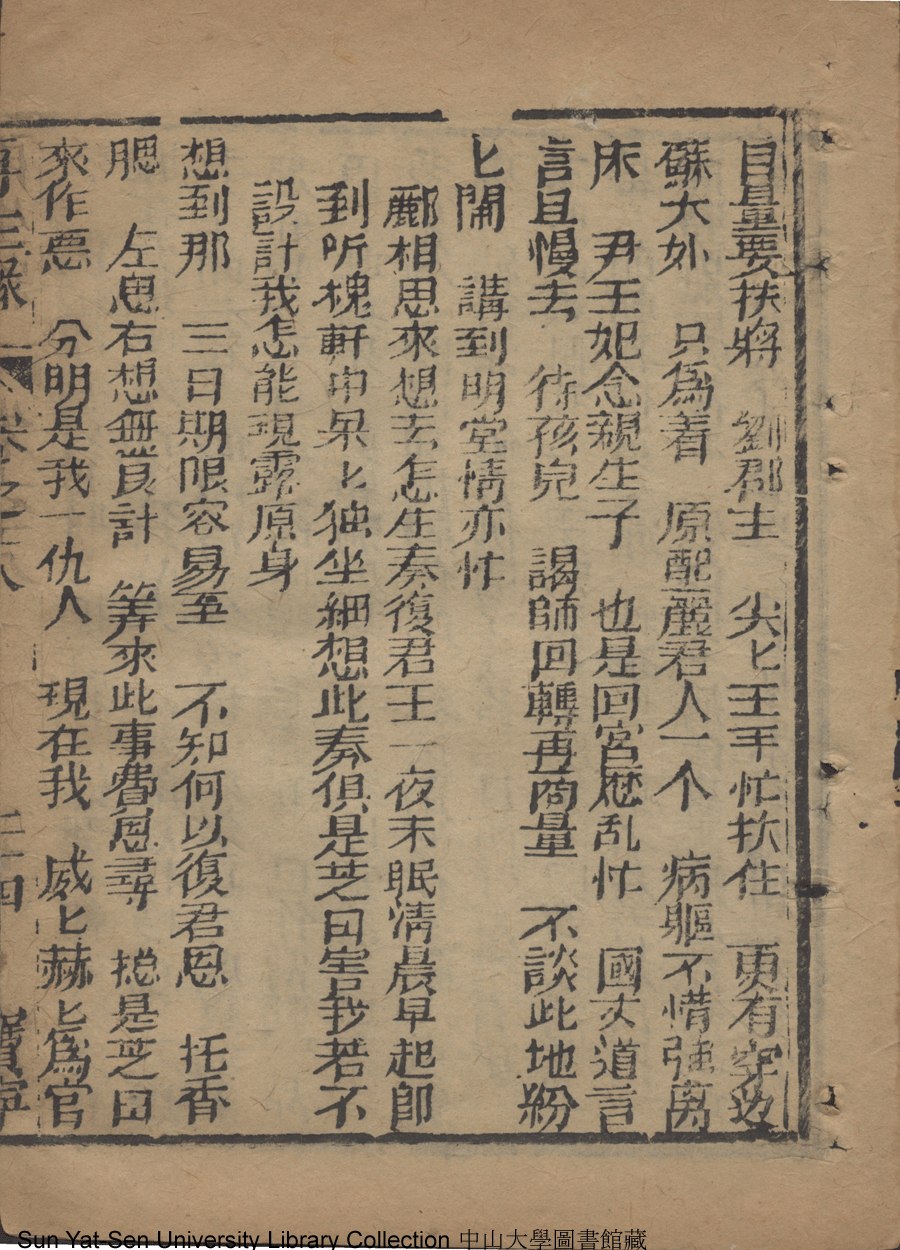 目量要扶將　劉郡主　尖匕玉手忙扶住　更有
蘇大　只為着　原配麗君人一个　病軀不惜強离
床　尹王妃念親生子　也是回宮歷乱忙　國丈道言
言且慢去　待孩兒　謁師回轉再商量　不談此地紛
匕鬧　講到明堂情亦忙
酈相思來想去怎生奏復君王一夜未眠清晨早起即
到听槐軒中呆匕独坐細想此奏俱是芝田害我若不
設計我怎能現露原身
想到那　三日期限容易至　不知何以復君恩　托香
腮　左思右想無良計　筭來此事費恩尋　捴是芝田
來作惡　分明是我一仇人　現在我　威匕赫匕為官
再生緣　卷之十八　二十四　寶寧
Sun Yat-Sen University Library Collection 中山大學圖書館藏